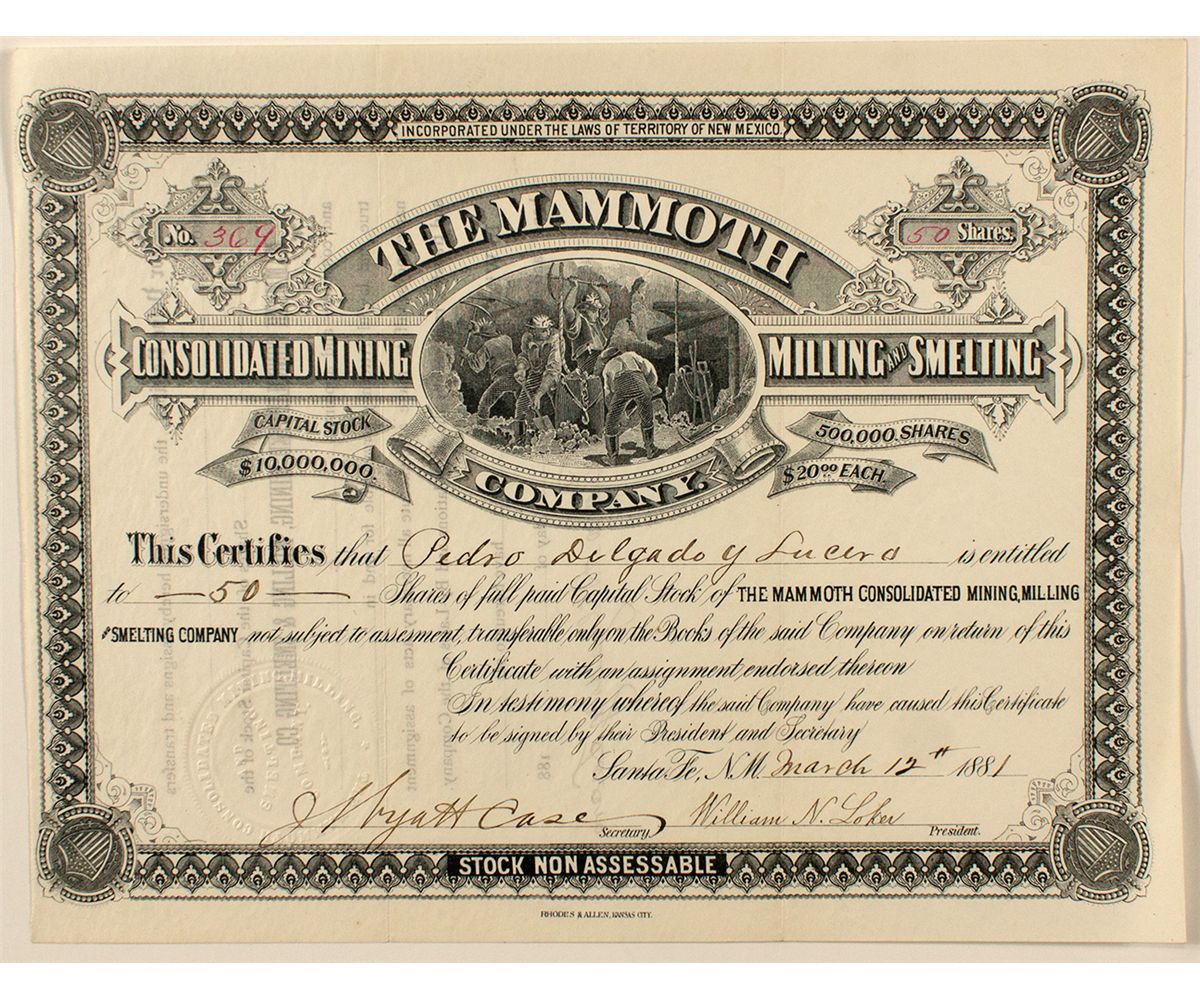 INCORPORATED UNDER THE LAWS OF TERRITORY OF NEW MEXICO.
No. 369
50 Shares.
THE MAMMOTH
CONSOLIDATED MINING MILLING AND SMELTING
COMPANY.
CAPITAL STOCK
$10,000,000.
500,000 SHARES
$20.00 EACH.
This Certifies that Pedro Delgado y Lucero is entitled
to — 50 — Shares of full paid Capital Stock of THE MAMMOTH CONSOLIDATED MINING, MILLING
AND SMELTING COMPANY not subject to assesment, transferable only on the Books of the said Company on return of this
Certificate with an assignment endorsed thereon
In testimony whereof the said Company have caused this Certificate
to be signed by their President and Secretary
Santa Fe, N.M. March 12th 1881
J Wyatt Case Secretary William N. Loker President.
STOCK NON ASSESSABLE
RHODES & ALLEN, KANSAS CITY.